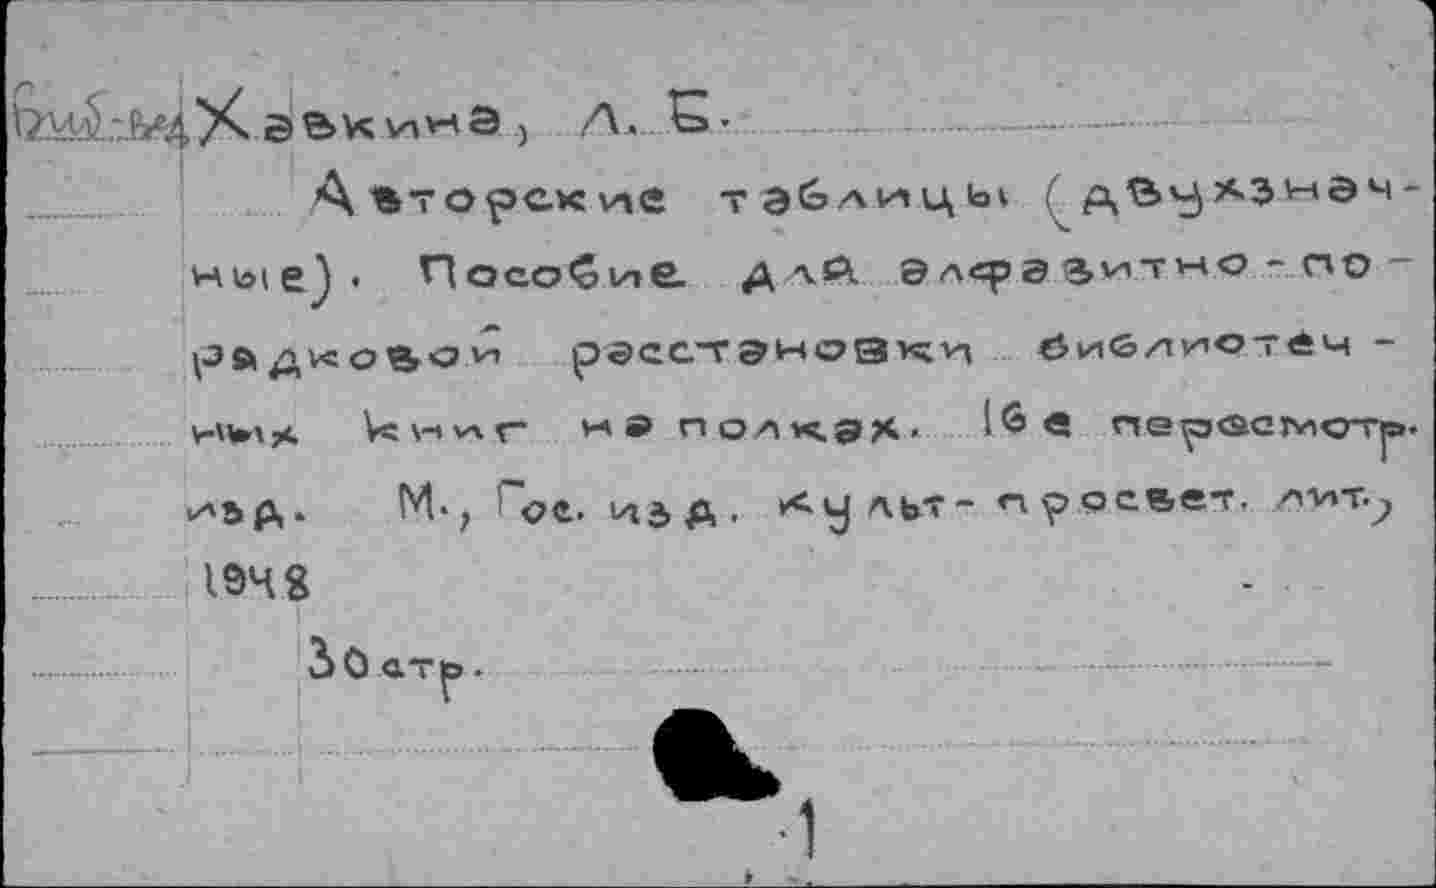 Хавкина, Л. Б.
Авторские таблицы (двухзнач-
ные). Пособие для алфавитно-по-
рядковой расстановки библиотеч-
ных книг на полках. 16е перасмотр.
изд. М., Гос. изд. культ-просвет. лит.,
1948
30 стр.
1